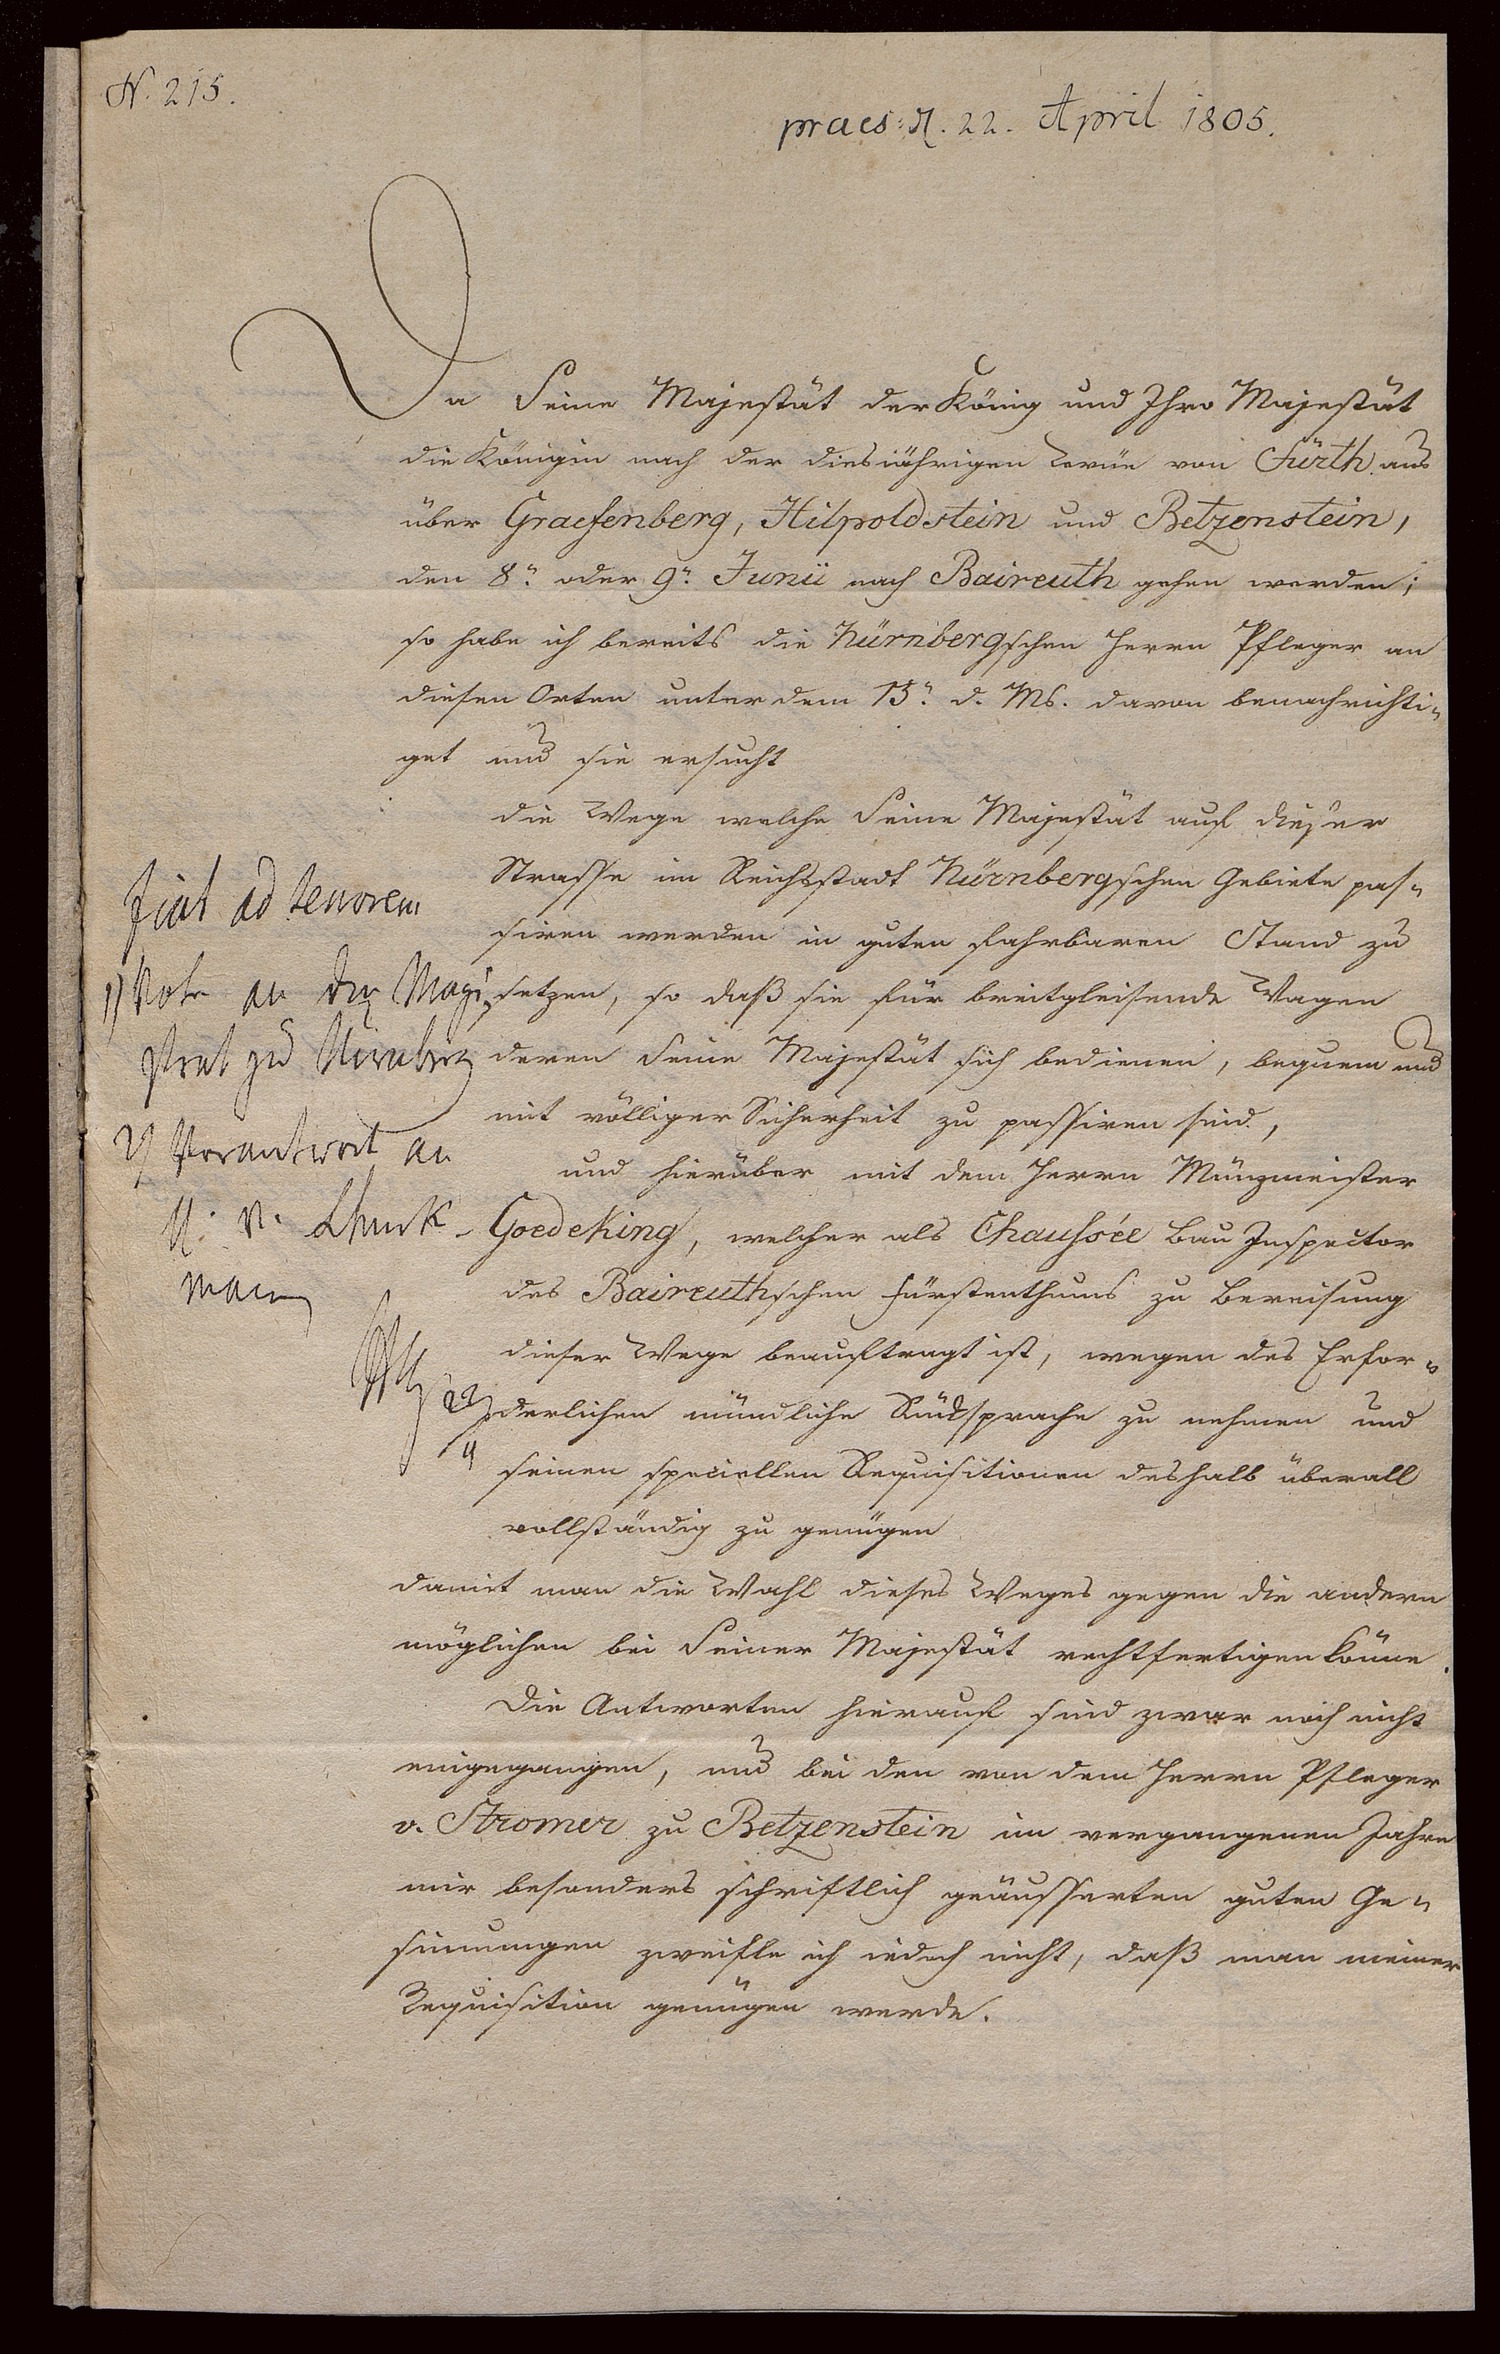 N. 215.
praes: d. 22. April 1805.
Da Seine Majestät der König und Ihro Majestät
die Königin nach der diesiährigen Revüe von Fürth aus
über Graefenberg, Hilpoldstein und Betzenstein,
den 8n. oder 9n. Junii nach Baireuth gehen werden;
so habe ich bereits die Nürnbergschen Herrn Pfleger an
diesen Orten unter dem 13n. d. Ms. davon benachrichti-
get und sie ersucht
die Wege welche Seine Majestät auf dieser
Strasse im Reichsstadt Nürnbergschen Gebiete pas-
siren werden in guten fahrbaren Stand zu
setzen, so daß sie für breitgleisende Wagen
deren Seine Majestät sich bedienen, bequem und
mit völliger Sicherheit zu passiren sind,
und hierüber mit dem Herrn Münzmeister
Goedeking, welcher als Chaussée Bau Inspector
des Baireuthschen Fürstenthums zu Bereisung
dieser Wege beauftragt ist, wegen des Erfor-
derlichen mündliche Rücksprache zu nehmen und
seinen speciellen Requisitionen deshalb überall
vollständig zu genügen
damit man die Wahl dieses Weges gegen die andern
möglichen bei Seiner Majestät rechtfertigen könne.
Die Antworten hierauf sind zwar noch nicht
eingegangen, und bei den von dem Herrn Pfleger
v. Stromer zu Betzenstein im vergangenen Jahre
mir besonders schriftlich geäusserten guten Ge-
sinnungen zweifle ich iedoch nicht, daß man meiner
Requisition genügen werde.
fiat ad tenorem
1) Note an den Magi-
strat zu Nürnberg
2) Verantwort an
H. v. Schuck-
mann
22
4